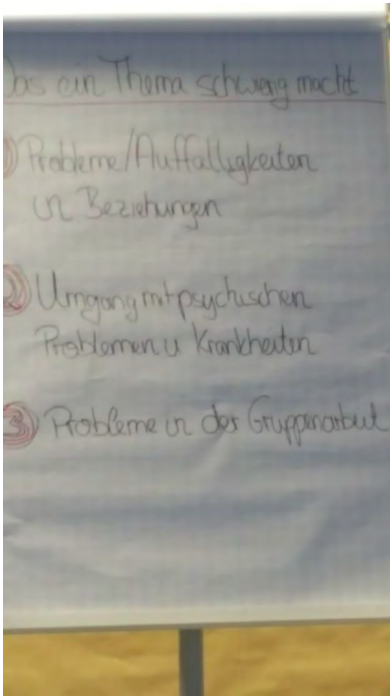 Was ein Thema schwierig macht
1) Probleme/Auffälligkeiten
in Beziehungen
2) Umgang mit psychischen
Problemen u Krankheiten
3) Probleme in der Gruppenarbeit